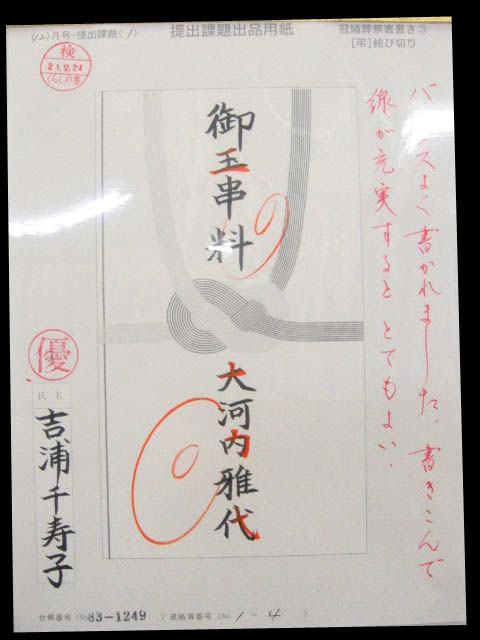 (12)月号・提出課題(1)
提出課題出品用紙
冠婚葬祭表書き③
[弔]結び切り
検
21.12.24
くらしの書
バランスよく書かれました。書きこんで
線が充実するととてもよい。
御玉串料
大河内雅代
優
氏名
吉浦千寿子
台帳番号(No.83-1249)連絡簿番号(No.1-4)